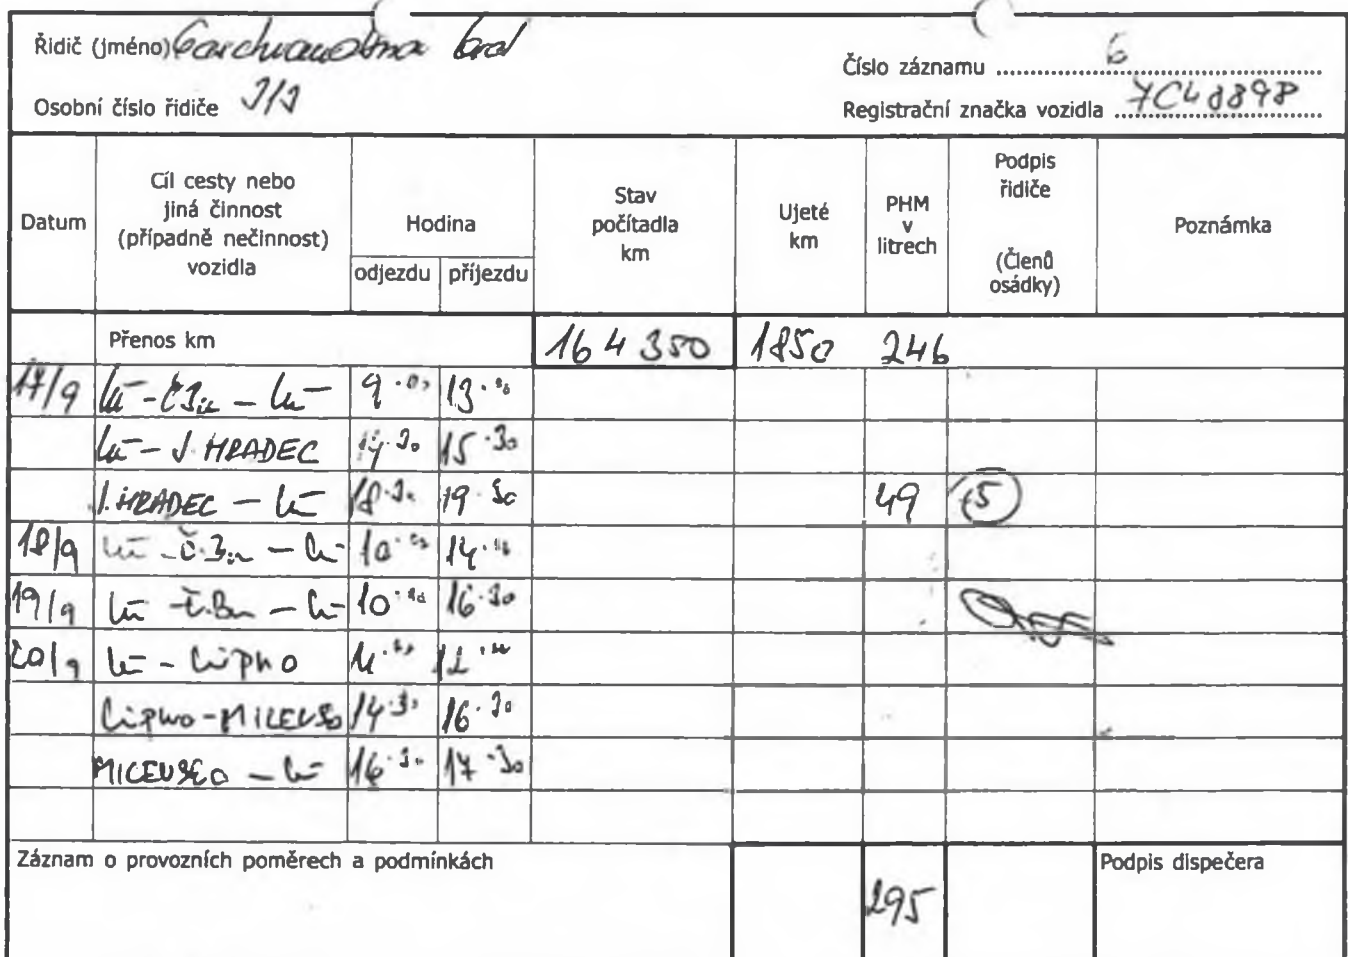 Řidič (jméno)
Číslo záznamu 6
Osobní číslo řidiče
Registrační značka vozidla 7C4 8898
Datum
Cíl cesty nebo
jiná činnost
(případně nečinnost)
vozidla
Hodina
odjezdu příjezdu
Stav
počítadla
km
Ujeté
km
PHM
v
litrech
Podpis
řidiče
(Členů
osádky)
Poznámka
Přenos km 164 350 1850 246
17/9 9.00 13.00
J. HRADEC 14.30 15.30
J. HRADEC 18.30 19.30 49 15
18/9 10.00 14.00
19/9 10.00 16.30
20/9 LIPNO
LIPNO-MILEVSKO 14.30 16.30
MILEVSKO 16.30 17.30
Záznam o provozních poměrech a podmínkách 295 Podpis dispečera